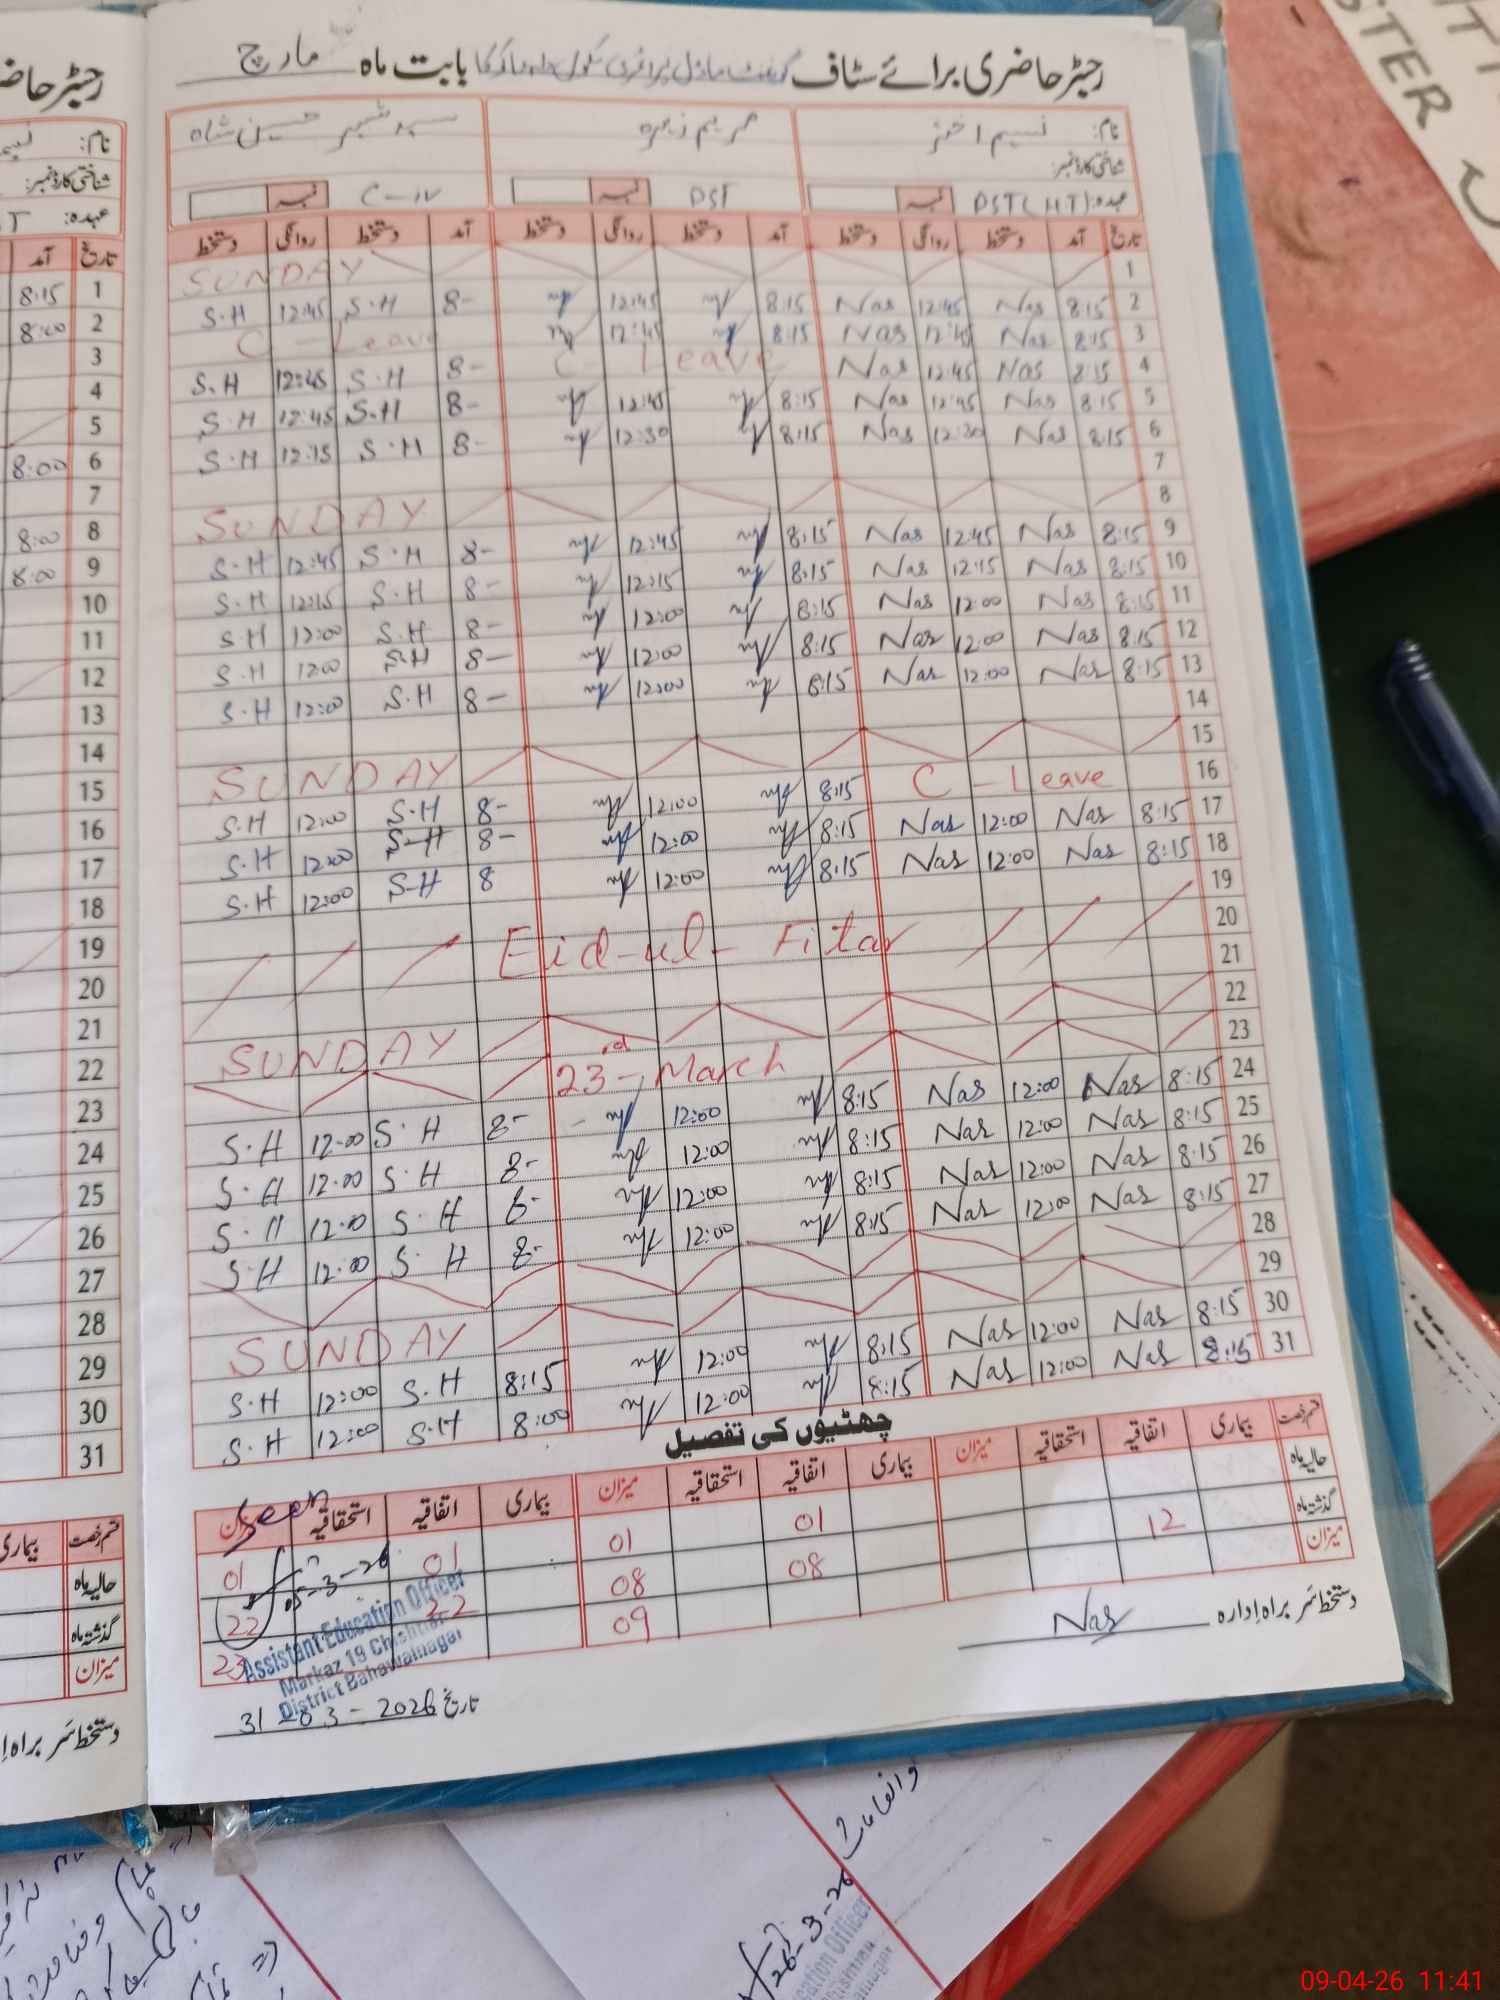 رجسٹر حاضری برائے سٹاف گورنمنٹ ماڈل پرائمری سکول بابت ماہ مارچ
نام: نسیم اختر مریم زہرہ سید شبیر حسین شاہ
شناختی کارڈ نمبر:
عہدہ: PST(HT) PST C-IV
تاریخ آمد دستخط روانگی دستخط آمد دستخط روانگی دستخط آمد دستخط روانگی دستخط
1 SUNDAY
2 8:15 Nas 12:45 Nas 8:15 12:45 8- S.H 12:45 S.H
3 8:15 Nas 12:45 Nas 8:15 12:45 C-Leave
4 8:15 Nas 12:45 Nas C- Leave 8- S.H 12:45 S.H
5 8:15 Nas 12:45 Nas 8:15 12:45 8- S.H 12:45 S.H
6 8:15 Nas 12:30 Nas 8:15 12:30 8- S.H 12:15 S.H
7
8 SUNDAY
9 8:15 Nas 12:45 Nas 8:15 12:45 8- S.H 12:45 S.H
10 8:15 Nas 12:15 Nas 8:15 12:15 8- S.H 12:15 S.H
11 8:15 Nas 12:00 Nas 8:15 12:00 8- S.H 12:00 S.H
12 8:15 Nas 12:00 Nas 8:15 12:00 8- S.H 12:00 S.H
13 8:15 Nas 12:00 Nas 8:15 12:00 8- S.H 12:00 S.H
14
15 SUNDAY
16 C-Leave 8:15 12:00 8- S.H 12:00 S.H
17 8:15 Nas 12:00 Nas 8:15 12:00 8- S-H 12:00 S.H
18 8:15 Nas 12:00 Nas 8:15 12:00 8 S-H 12:00 S.H
19
20 Eid-ul-Fitar
21
22 SUNDAY
23 23rd-March
24 8:15 Nas 12:00 Nas 8:15 12:00 8- S.H 12:00 S.H
25 8:15 Nas 12:00 Nas 8:15 12:00 8- S.H 12:00 S.H
26 8:15 Nas 12:00 Nas 8:15 12:00 8- S.H 12:00 S.H
27 8:15 Nas 12:00 Nas 8:15 12:00 8- S.H 12:00 S.H
28
29 SUNDAY
30 8:15 Nas 12:00 Nas 8:15 12:00 8:15 S.H 12:00 S.H
31 8:15 Nas 12:00 Nas 8:15 12:00 8:00 S.H 12:00 S.H
چھٹیوں کی تفصیل
قسم رخصت بیماری اتفاقیہ استحقاقیہ میزان بیماری اتفاقیہ استحقاقیہ میزان بیماری اتفاقیہ استحقاقیہ میزان
حالیہ ماہ 01 01 01 01
گذشتہ ماہ 12 08 08 22 22
میزان 09 23
Seen
05-3-26
Assistant Education Officer
Markaz 19 Chishtian
District Bahawalnagar
دستخط سربراہ ادارہ Nas
تاریخ 31-03-2026
رجسٹر حاضر
نام:
شناختی کارڈ نمبر:
عہدہ:
تاریخ آمد
1 8:15
2 8:00
3
4
5
6 8:00
7
8 8:00
9 8:00
10
11
12
13
14
15
16
17
18
19
20
21
22
23
24
25
26
27
28
29
30
31
قسم رخصت بیماری
حالیہ ماہ
گذشتہ ماہ
میزان
دستخط سربراہ
26-3-26
09-04-26 11:41